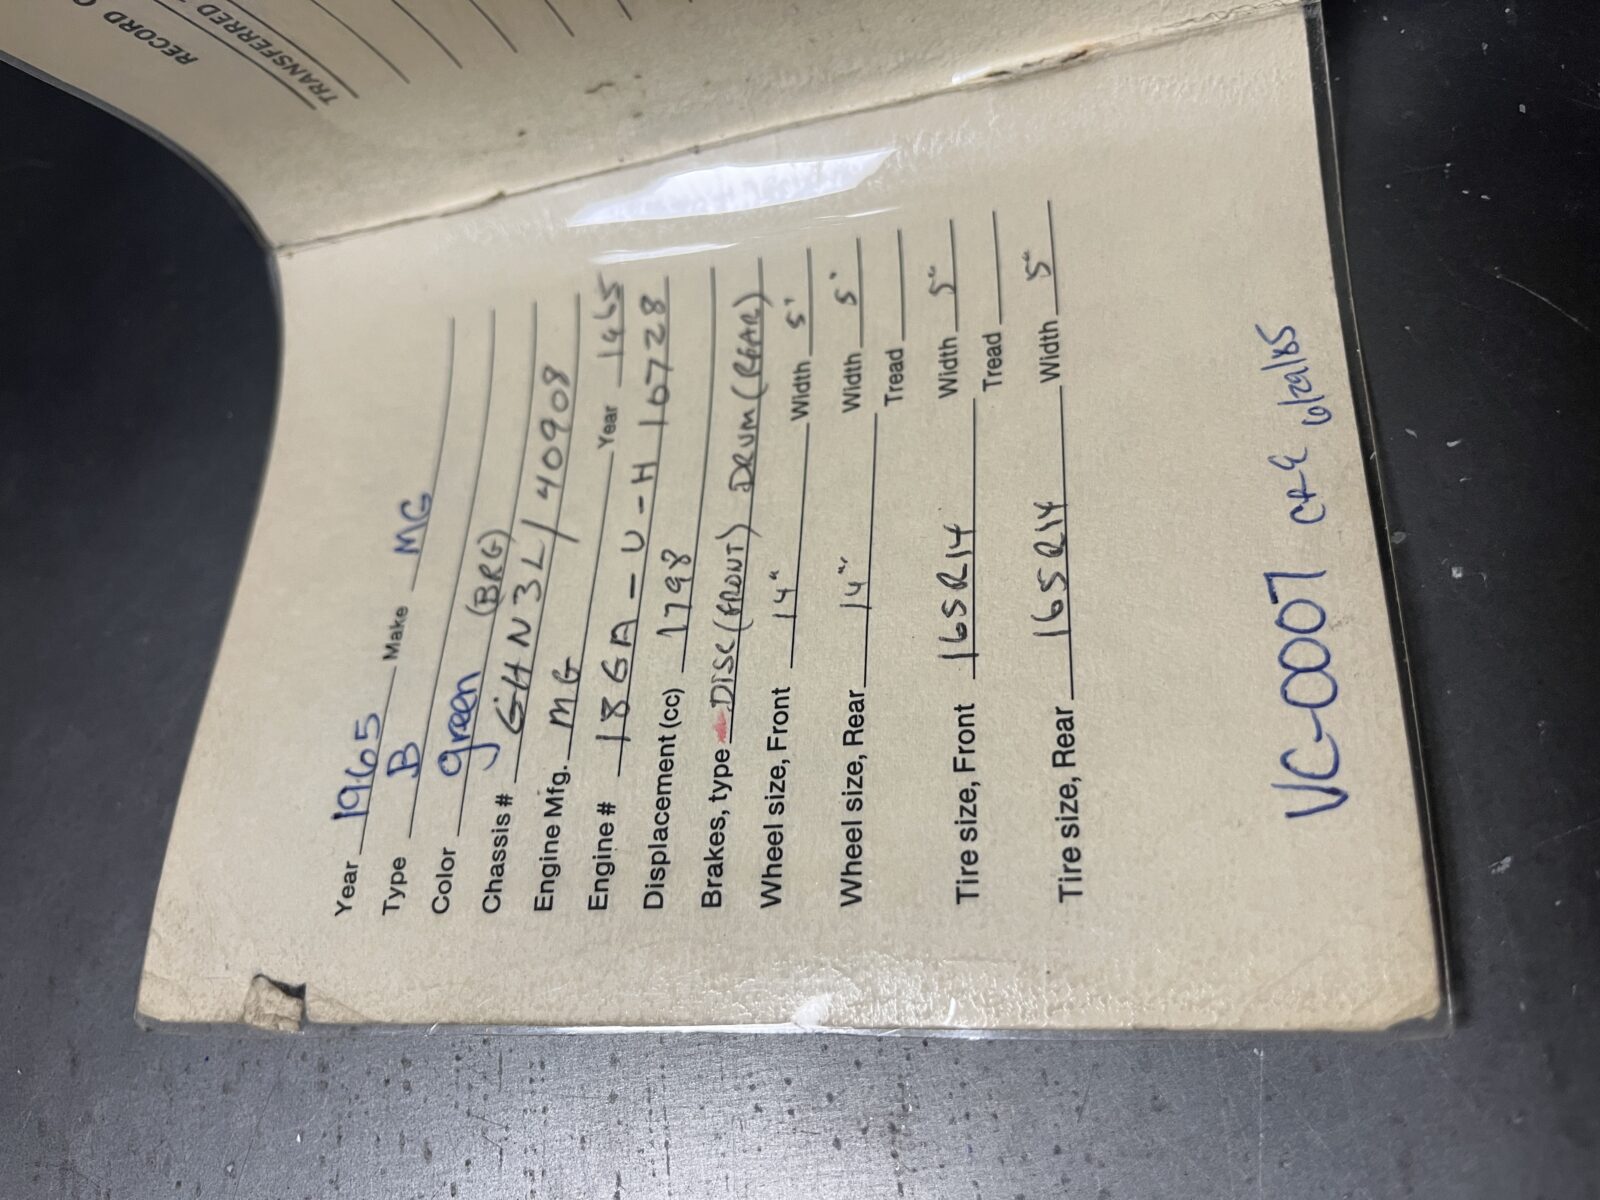 RECORD O
TRANSFERRED
Year 1965 Make MG
Type B
Color green (BRG)
Chassis # GHN3L/40908
Engine Mfg. MG Year 1965
Engine # 18GA-U-H 10728
Displacement (cc) 1798
Brakes, type DISC (FRONT) DRUM (REAR)
Wheel size, Front 14" Width 5"
Wheel size, Rear 14" Width 5"
Tread
Tire size, Front 165R14 Width 5"
Tread
Tire size, Rear 165R14 Width 5"
VC-0007 6/29/85